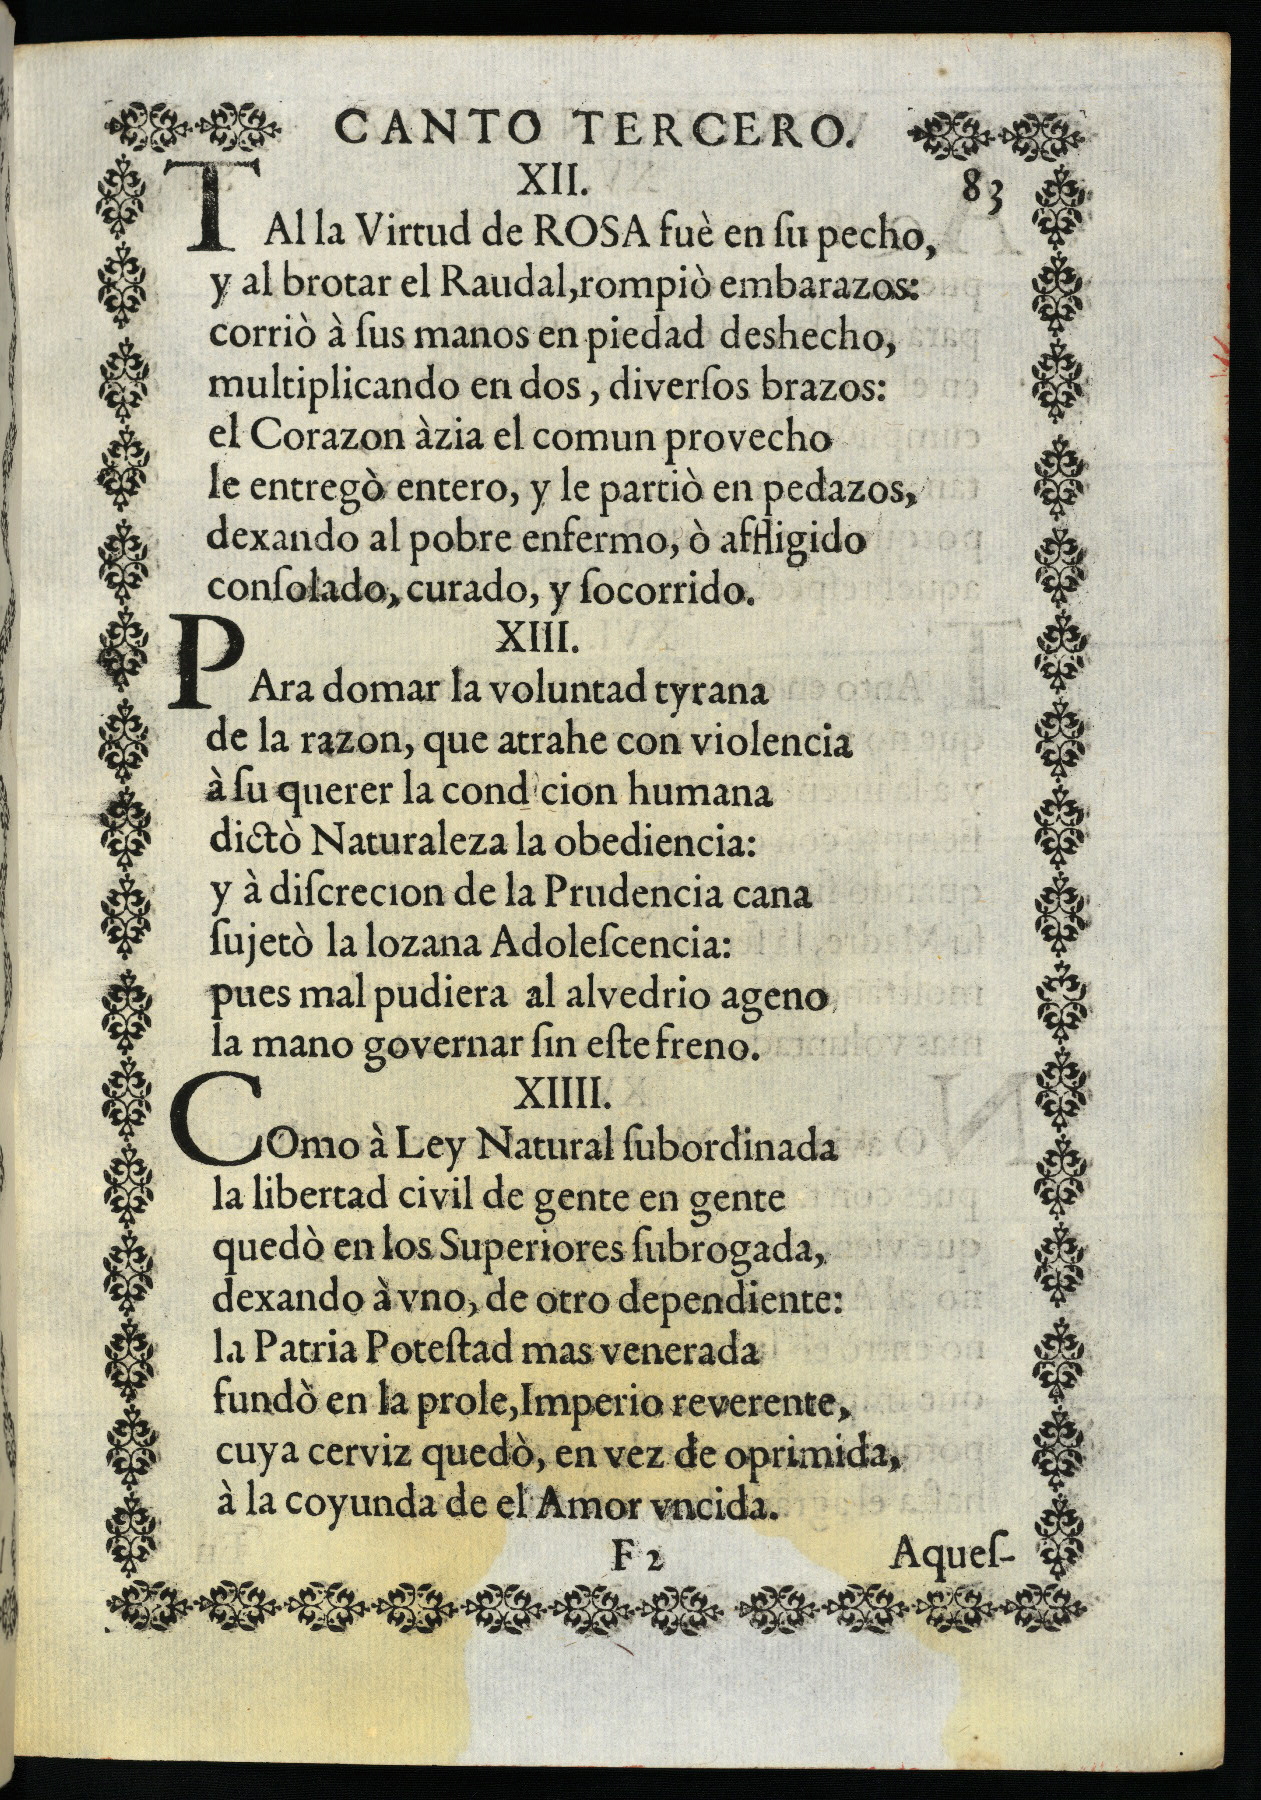 CANTO TERCERO.
XII.
83
TAl la Virtud de ROSA fuè en ſu pecho,
y al brotar el Raudal,rompiò embarazos:
corriò à ſus manos en piedad deshecho,
multiplicando en dos , diverſos brazos:
el Corazon àzia el comun provecho
le entregò entero, y le partiò en pedazos,
dexando al pobre enfermo, ò affligido
conſolado, curado, y ſocorrido.
XIII.
PAra domar la voluntad tyrana
de la razon, que atrahe con violencia
à ſu querer la condicion humana
dictò Naturaleza la obediencia:
y à diſcrecion de la Prudencia cana
ſujetò la lozana Adoleſcencia:
pues mal pudiera al alvedrio ageno
la mano governar ſin eſte freno.
XIIII.
COmo à Ley Natural ſubordinada
la libertad civil de gente en gente
quedò en los Superiores ſubrogada,
dexando à vno, de otro dependiente:
la Patria Poteſtad mas venerada
fundò en la prole,Imperio reverente,
cuya cerviz quedò, en vez de oprimida,
à la coyunda de el Amor vncida.
F 2
Aqueſ-